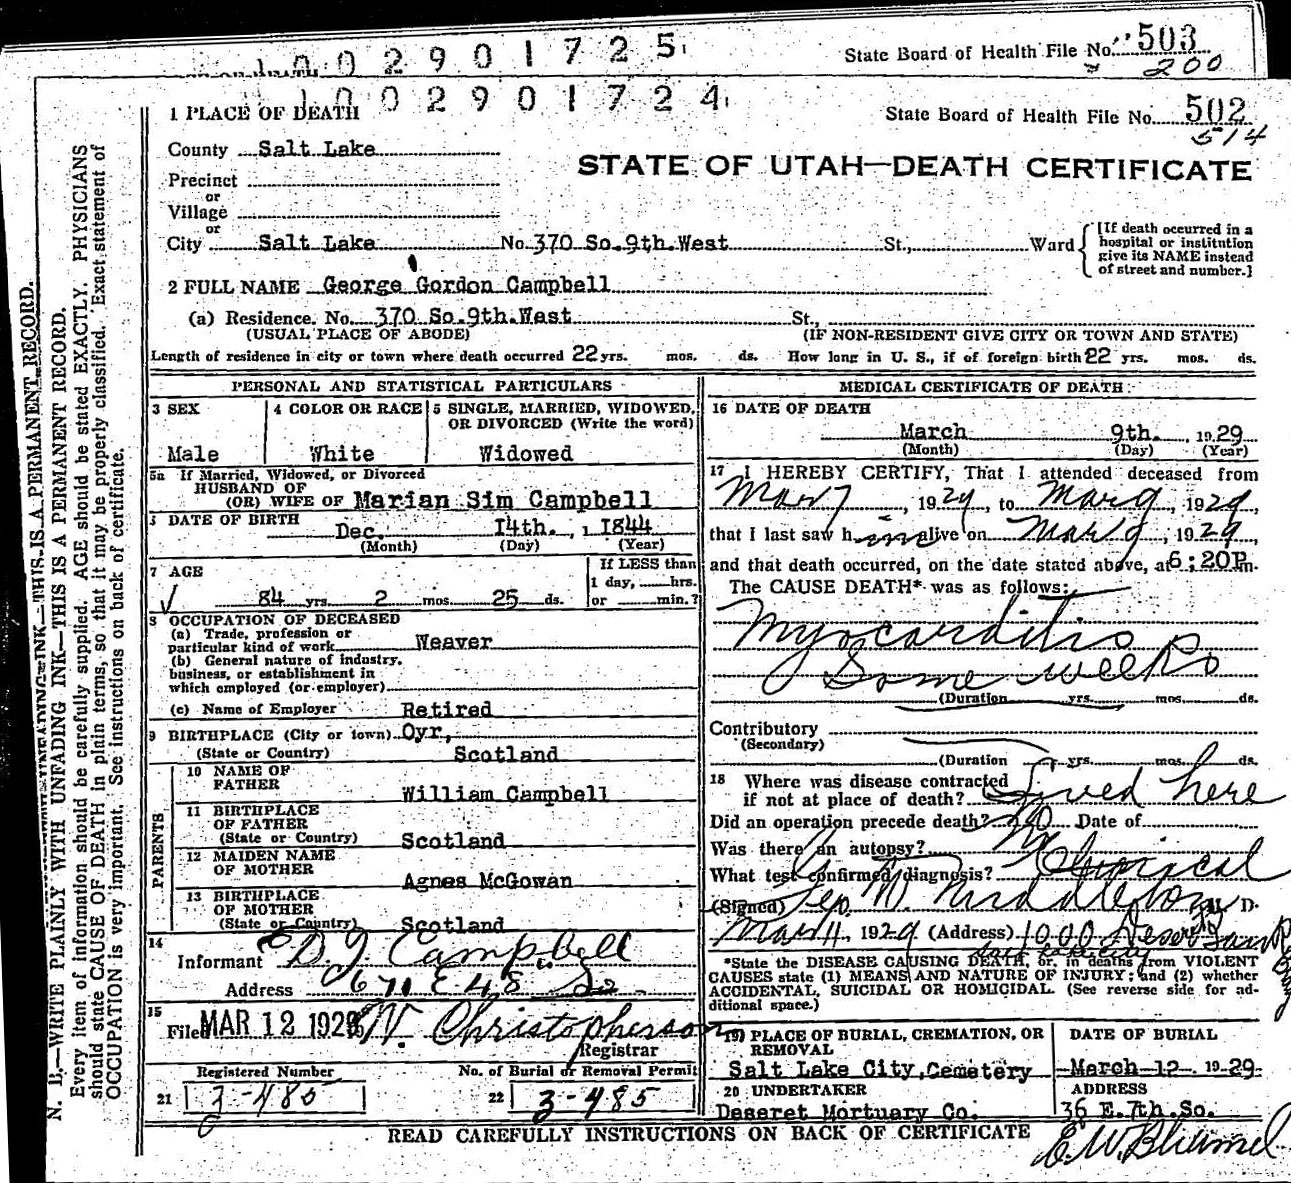 002901725
State Board of Health File No. 503
200
1002901724
1 PLACE OF DEATH
State Board of Health File No. 502
514
County Salt Lake
STATE OF UTAH—DEATH CERTIFICATE
Precinct
or
Village
or
City Salt Lake No. 370 So. 9th. West St., Ward
[If death occurred in a hospital or institution give its NAME instead of street and number.]
2 FULL NAME George Gordon Campbell
(a) Residence. No. 370 So. 9th. West St.,
(USUAL PLACE OF ABODE) (IF NON-RESIDENT GIVE CITY OR TOWN AND STATE)
Length of residence in city or town where death occurred 22 yrs. mos. ds. How long in U. S., if of foreign birth 22 yrs. mos. ds.
PERSONAL AND STATISTICAL PARTICULARS
3 SEX
Male
4 COLOR OR RACE
White
5 SINGLE, MARRIED, WIDOWED, OR DIVORCED (Write the word)
Widowed
5a If Married, Widowed, or Divorced
HUSBAND OF
(OR) WIFE OF Marian Sim Campbell
DATE OF BIRTH
Dec. 14th. , 1 1844
(Month) (Day) (Year)
7 AGE
84 yrs. 2 mos. 25 ds.
If LESS than
1 day, hrs.
or min.?
8 OCCUPATION OF DECEASED
(a) Trade, profession or
particular kind of work Weaver
(b) General nature of industry,
business, or establishment in
which employed (or employer)
(c) Name of Employer Retired
9 BIRTHPLACE (City or town) Oyr,
(State or Country) Scotland
PARENTS
10 NAME OF
FATHER William Campbell
11 BIRTHPLACE
OF FATHER
(State or Country) Scotland
12 MAIDEN NAME
OF MOTHER Agnes McGowan
13 BIRTHPLACE
OF MOTHER
(State or Country) Scotland
14
Informant D. J. Campbell
Address 671 E 48 So
15
Filed MAR 12 1929 W. Christopherson
Registrar
Registered Number No. of Burial or Removal Permit
21 3-485 22 3-485
MEDICAL CERTIFICATE OF DEATH
16 DATE OF DEATH
March 9th. , 1929
(Month) (Day) (Year)
17 I HEREBY CERTIFY, That I attended deceased from
Mar 7, 1929, to Mar 9, 1929,
that I last saw him alive on Mar 9, 1929,
and that death occurred, on the date stated above, at 6:20P.m.
The CAUSE DEATH* was as follows:
Myocarditis
Some weeks
(Duration yrs. mos. ds.
Contributory
(Secondary)
(Duration yrs. mos. ds.
18 Where was disease contracted
if not at place of death? Lived here
Did an operation precede death? No Date of
Was there an autopsy? No
What test confirmed diagnosis? Clinical
(Signed) Geo. W. Middleton M. D.
Mar 11, 1929 (Address) 1000 Deseret
*State the DISEASE CAUSING DEATH, or, in deaths from VIOLENT
CAUSES state (1) MEANS AND NATURE OF INJURY; and (2) whether
ACCIDENTAL, SUICIDAL OR HOMICIDAL. (See reverse side for ad-
ditional space.)
19) PLACE OF BURIAL, CREMATION, OR
REMOVAL
Salt Lake City, Cemetery
DATE OF BURIAL
March 12. 1929
20 UNDERTAKER
Deseret Mortuary Co.
ADDRESS
36 E. 7th. So.
READ CAREFULLY INSTRUCTIONS ON BACK OF CERTIFICATE
N. B.—WRITE PLAINLY WITH UNFADING INK—THIS IS A PERMANENT RECORD.
Every item of information should be carefully supplied. AGE should be stated EXACTLY. PHYSICIANS
should state CAUSE OF DEATH in plain terms, so that it may be properly classified. Exact statement of
OCCUPATION is very important. See instructions on back of certificate.
INK—THIS IS A PERMANENT RECORD.